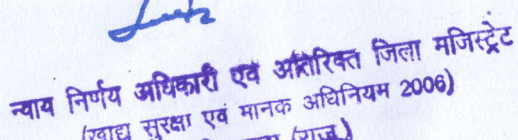 न्याय निर्णय अधिकारी एवं अतिरिक्त जिला मजिस्ट्रेट
(खाद्य सुरक्षा एवं मानक अधिनियम 2006)
(राज.)